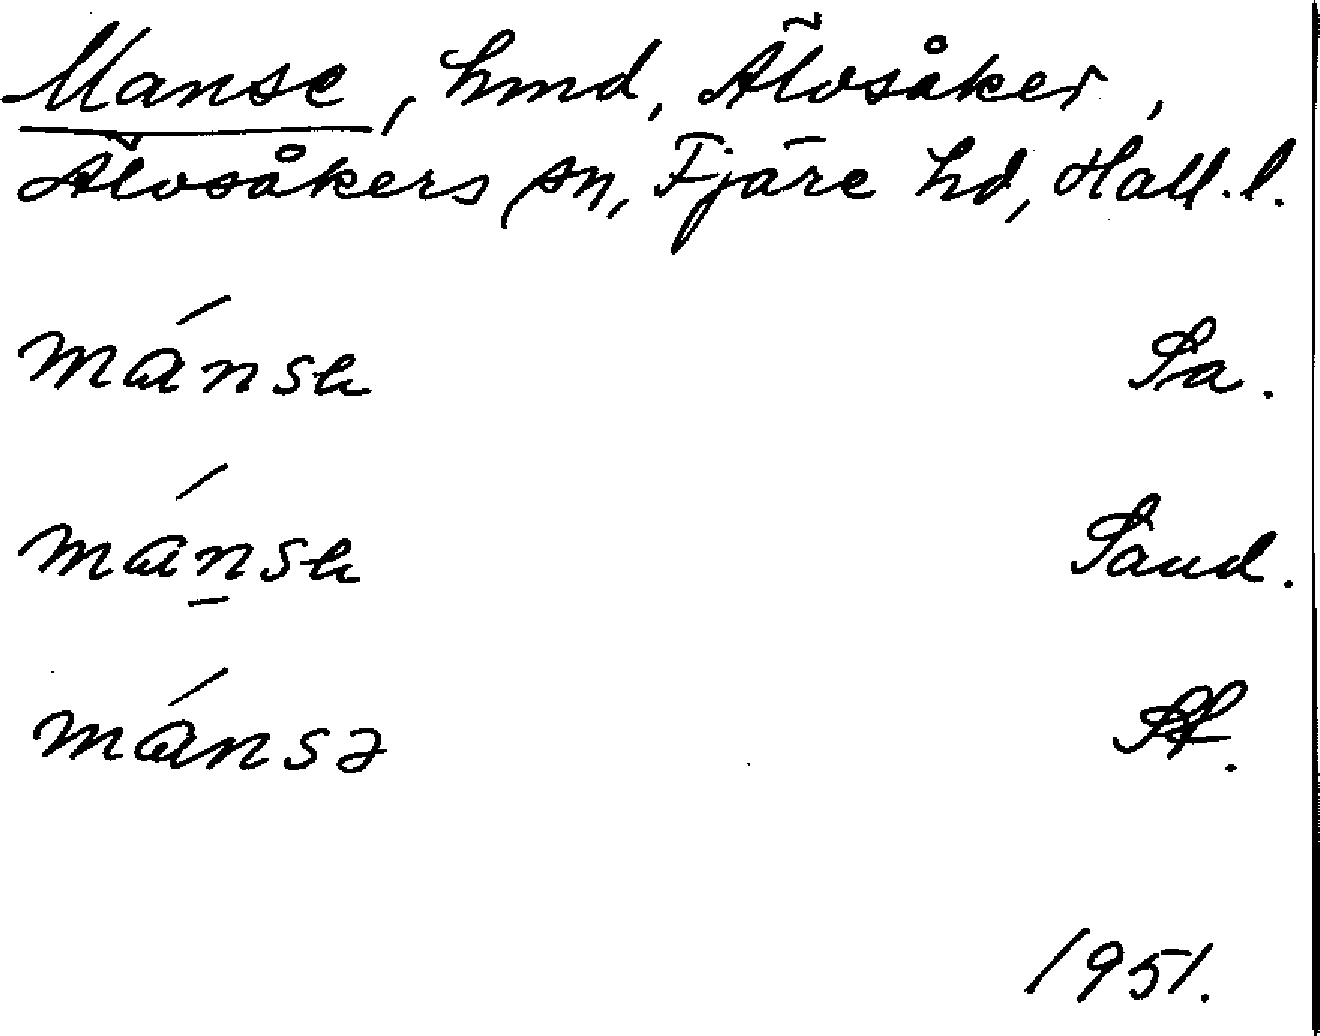 Manse, hmd, Älvsåker,
Älvsåkers sn, Fjäre hd, Hall. l.
mánsə Sa.
mánsə Sand.
mánsə
1951.